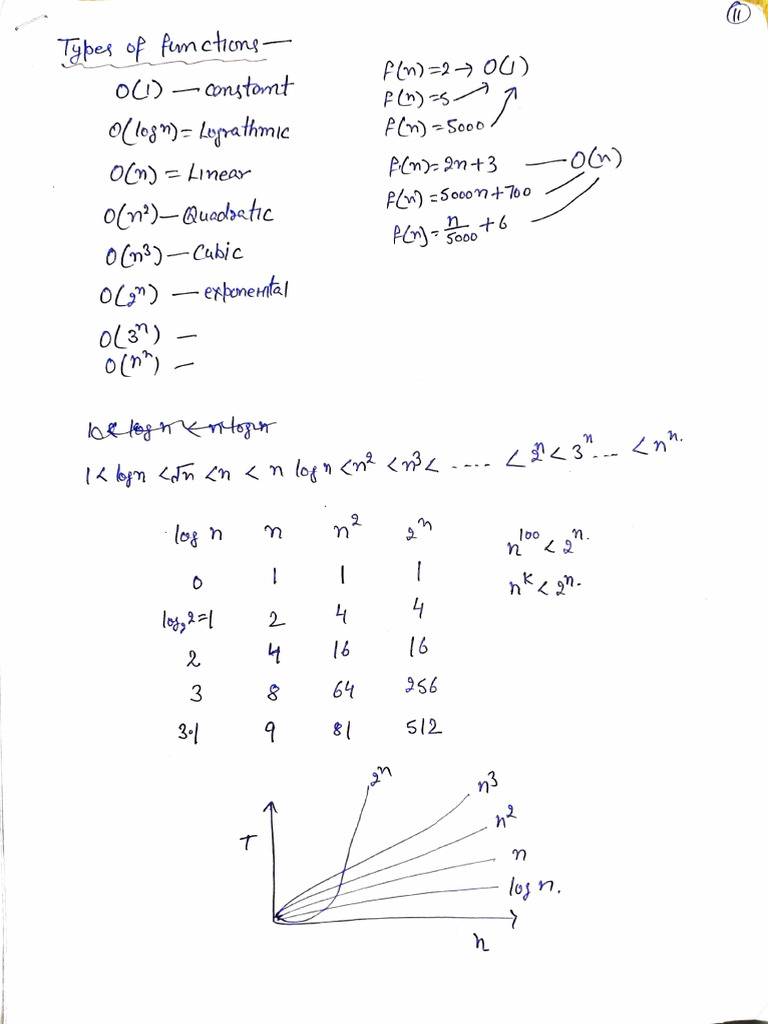 11
Types of functions—
O(1) — constant
O(logn) = Lograthmic
O(n) = Linear
O(n²) — Quadratic
O(n³) — Cubic
O(2ⁿ) — exponental
O(3ⁿ) —
O(nⁿ) —
f(n) = 2 → O(1)
f(n) = 5
f(n) = 5000
f(n) = 2n+3 — O(n)
f(n) = 5000n+700
f(n) = n/5000 + 6
1 < logn < n logn
1 < logn < √n < n < n logn < n² < n³ < ..... < 2ⁿ < 3ⁿ ... < nⁿ.
log n n n² 2ⁿ
0 1 1 1
log₂2=1 2 4 4
2 4 16 16
3 8 64 256
3.1 9 81 512
n¹⁰⁰ < 2ⁿ.
nᵏ < 2ⁿ.
2ⁿ
n³
n²
n
log n.
T
n